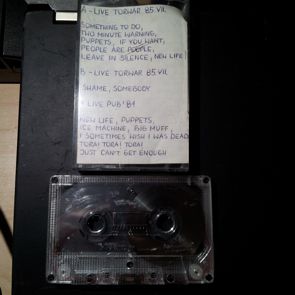 A - LIVE TORWAR 85.VII.
SOMETHING TO DO,
TWO MINUTE WARNING,
PUPPETS, IF YOU WANT,
PEOPLE ARE PEOPLE,
LEAVE IN SILENCE, NEW LIFE
B - LIVE TORWAR 85.VII
SHAME, SOMEBODY
+ LIVE PUB' 81
NEW LIFE, PUPPETS,
ICE MACHINE, BIG MUFF
I SOMETIMES WISH I WAS DEAD
TORA! TORA! TORA!
JUST CAN'T GET ENOUGH